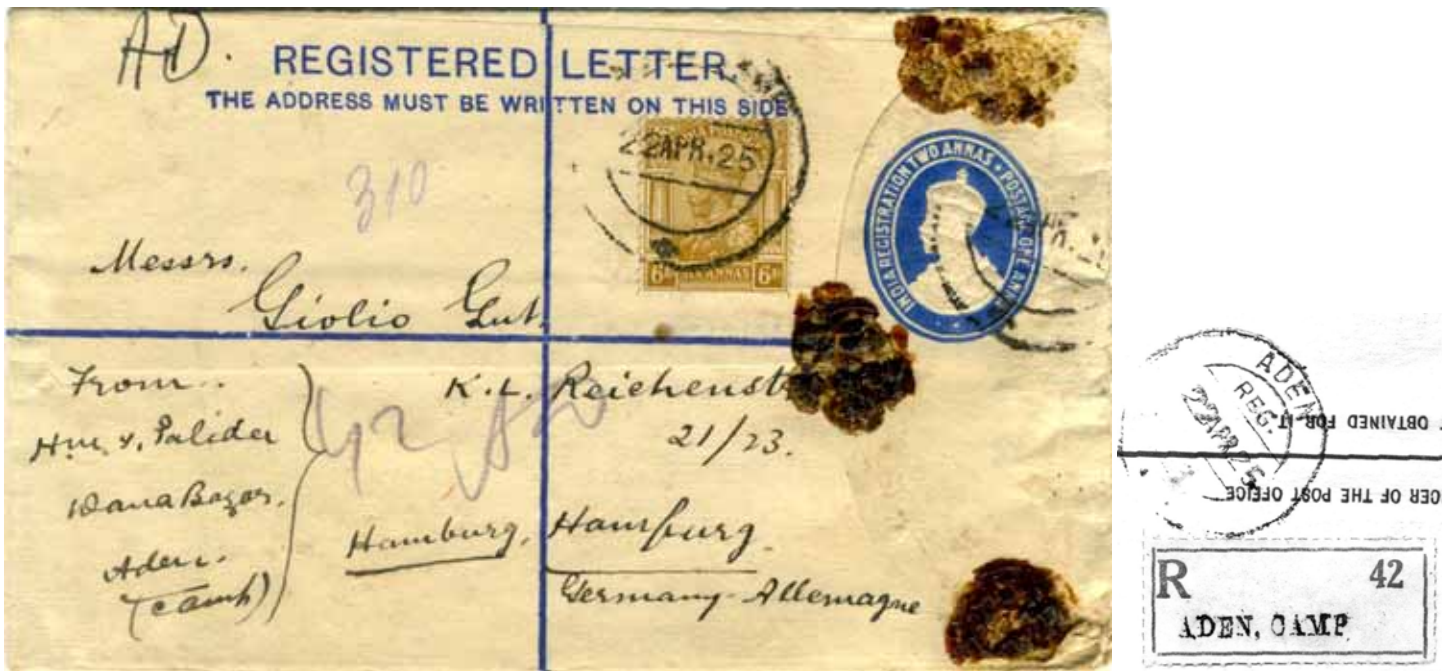 AD.
REGISTERED LETTER.
THE ADDRESS MUST BE WRITTEN ON THIS SIDE
22APR.25
310
INDIA REGISTRATION TWO ANNAS • POSTAGE ONE ANNA
6As ANNAS 6As
Messrs.
Giolio Gut.
K.L. Reichenst
21/23.
Hamburg, Hamburg.
Germany-Allemagne
From
Palider
Bazar.
Aden.
(Camp)
ADEN
REG.
22APR25
OBTAINED FOR IT.
CER OF THE POST OFFICE
R 42
ADEN, CAMP